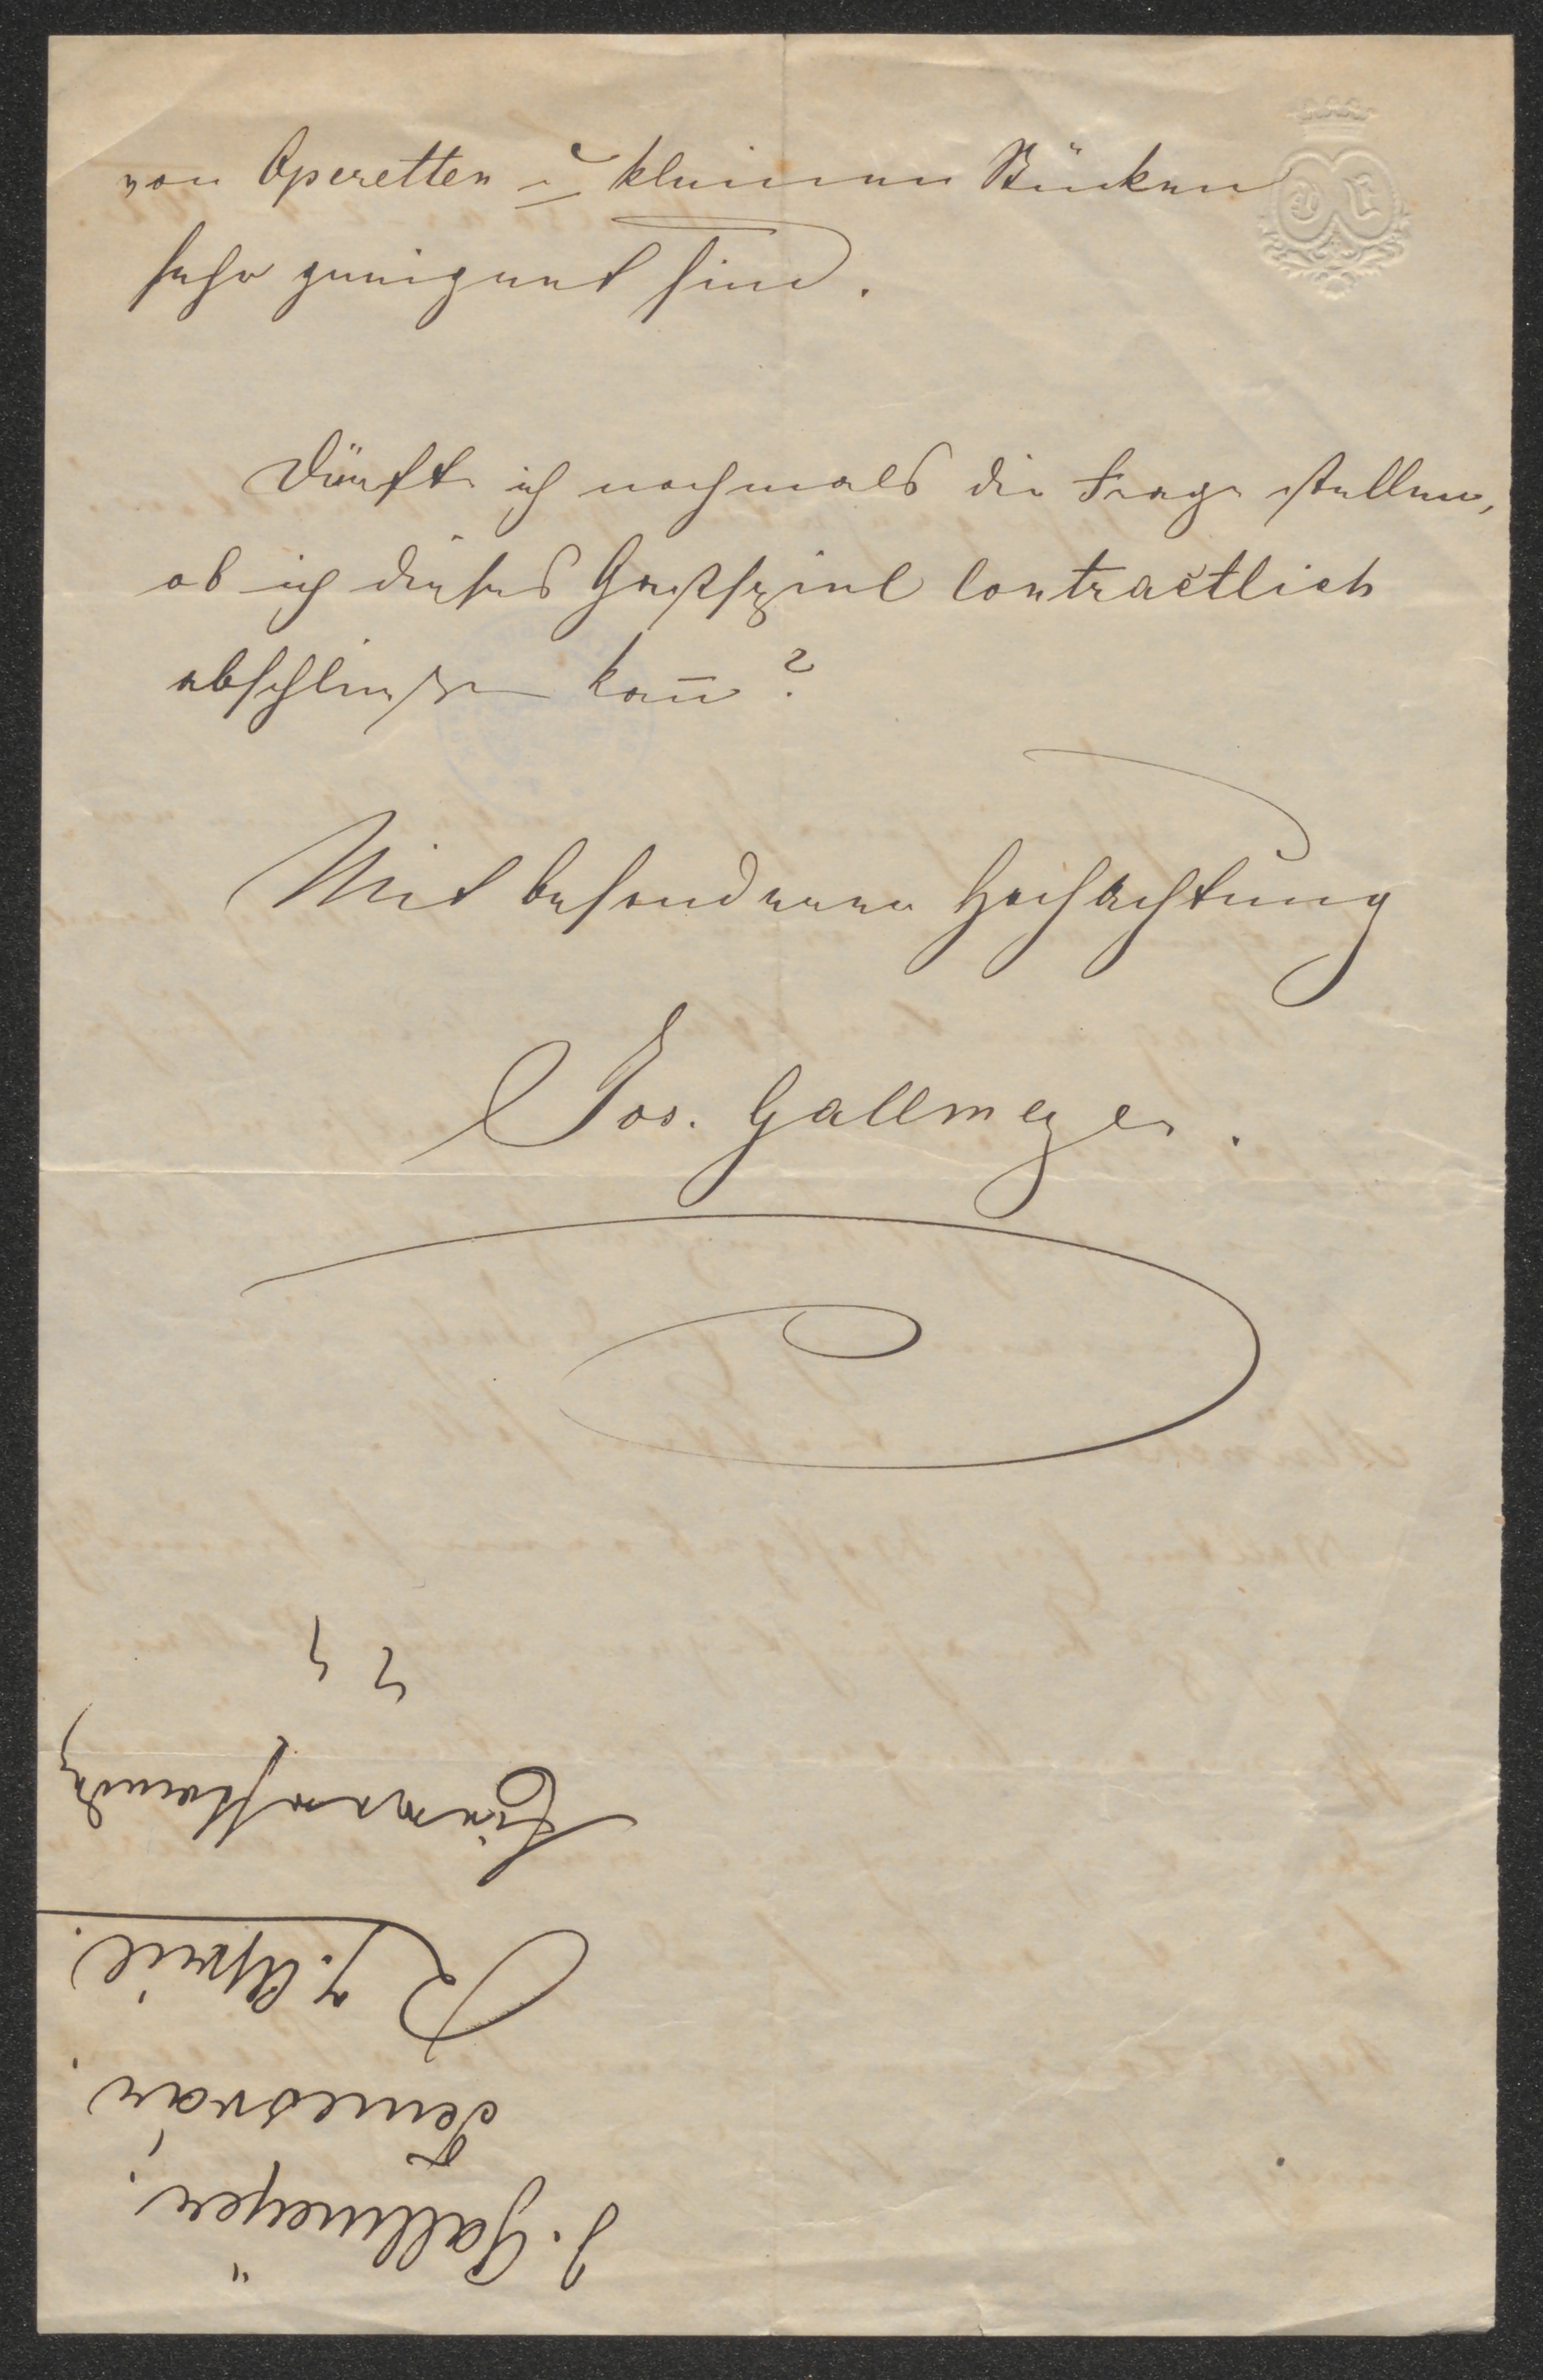 von Operetten u kleineren Stücken
sehr geeignet sind.
Dürfte ich nochmals die Frage stellen,
ob ich dieses Gastspiel contractlich
abschließen kann?
Mit besonderer Hochachtung
Jos. Gallmeyer.
J. Gallmeyer.
Temesvár.
R 7. April.
Einverstanden